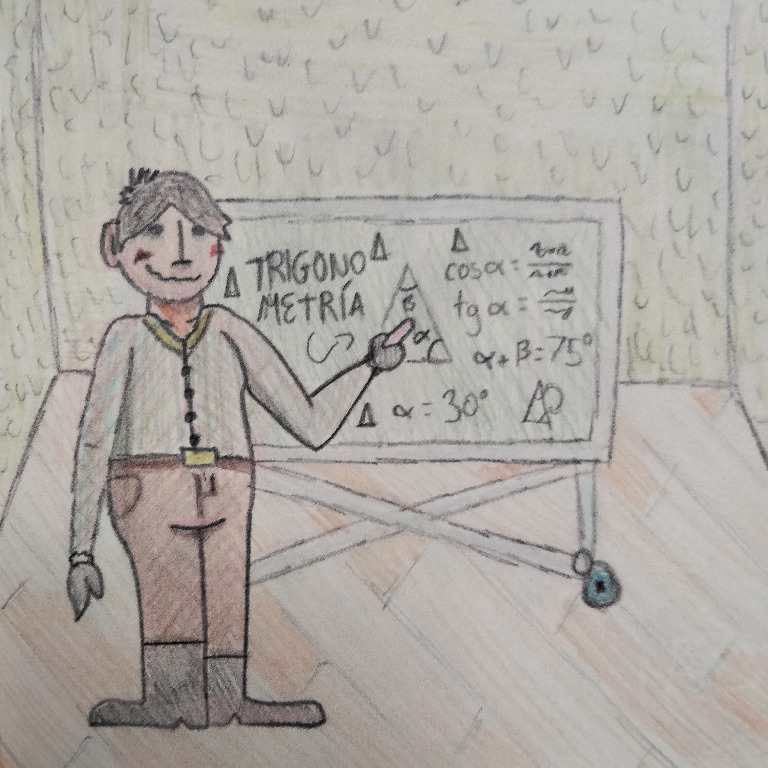 TRIGONO
METRÍA
β
α
cos α =
tg α =
α + β = 75°
α = 30°